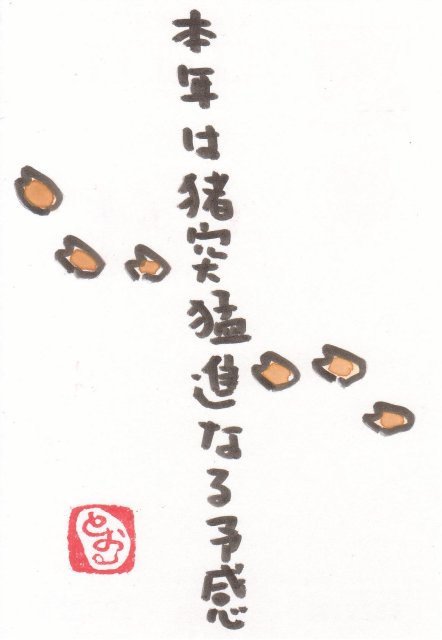 本年は猪突猛進なる予感
とおる